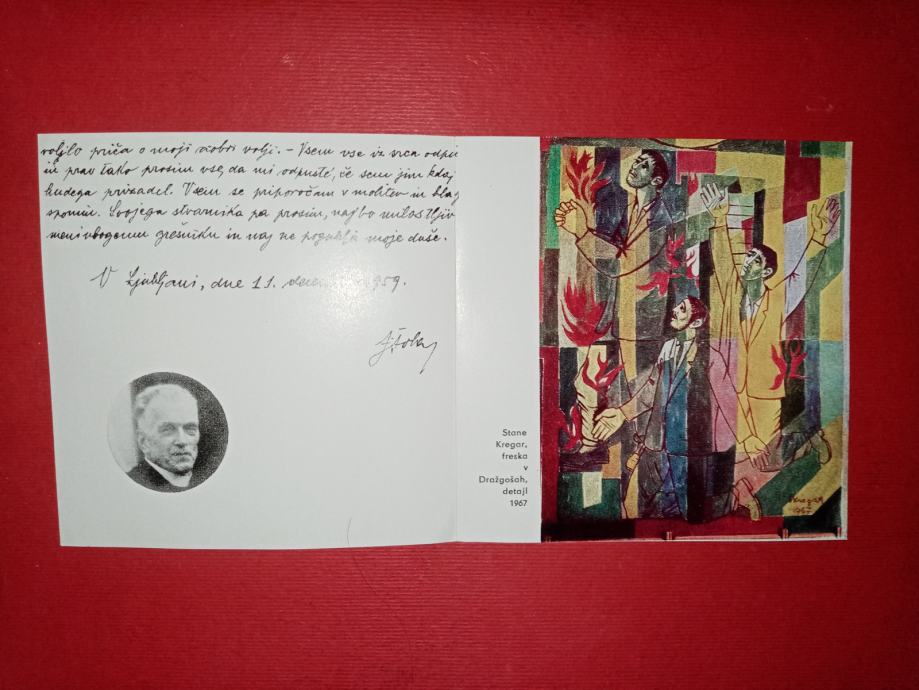 voljilo priča o moji dobri volji. – Vsem vse iz srca odpu
in prav tako prosim vse, da mi odpuste, če sem jim kdaj
hudega prizadel. Vsem se priporočam v molitev in blag
spomin. Svojega stvarnika pa prosim, naj bo milostljiv
meni ubogemu grešniku in naj ne pogublja moje duše.
V Ljubljani, dne 11. 1959.
Stane
Kregar,
freska
v
Dražgošah,
detajl
1967
Kregar
1967